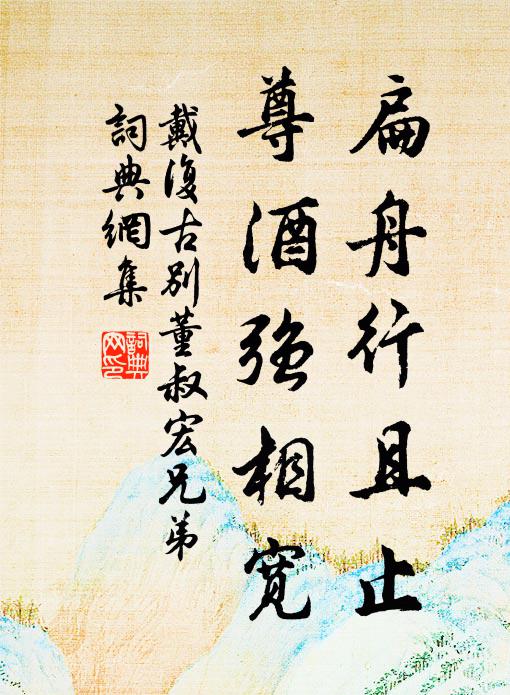 扁舟行且止
尊酒強相寬
戴復古別董叔宏兄弟
詞典網集
詞典網印